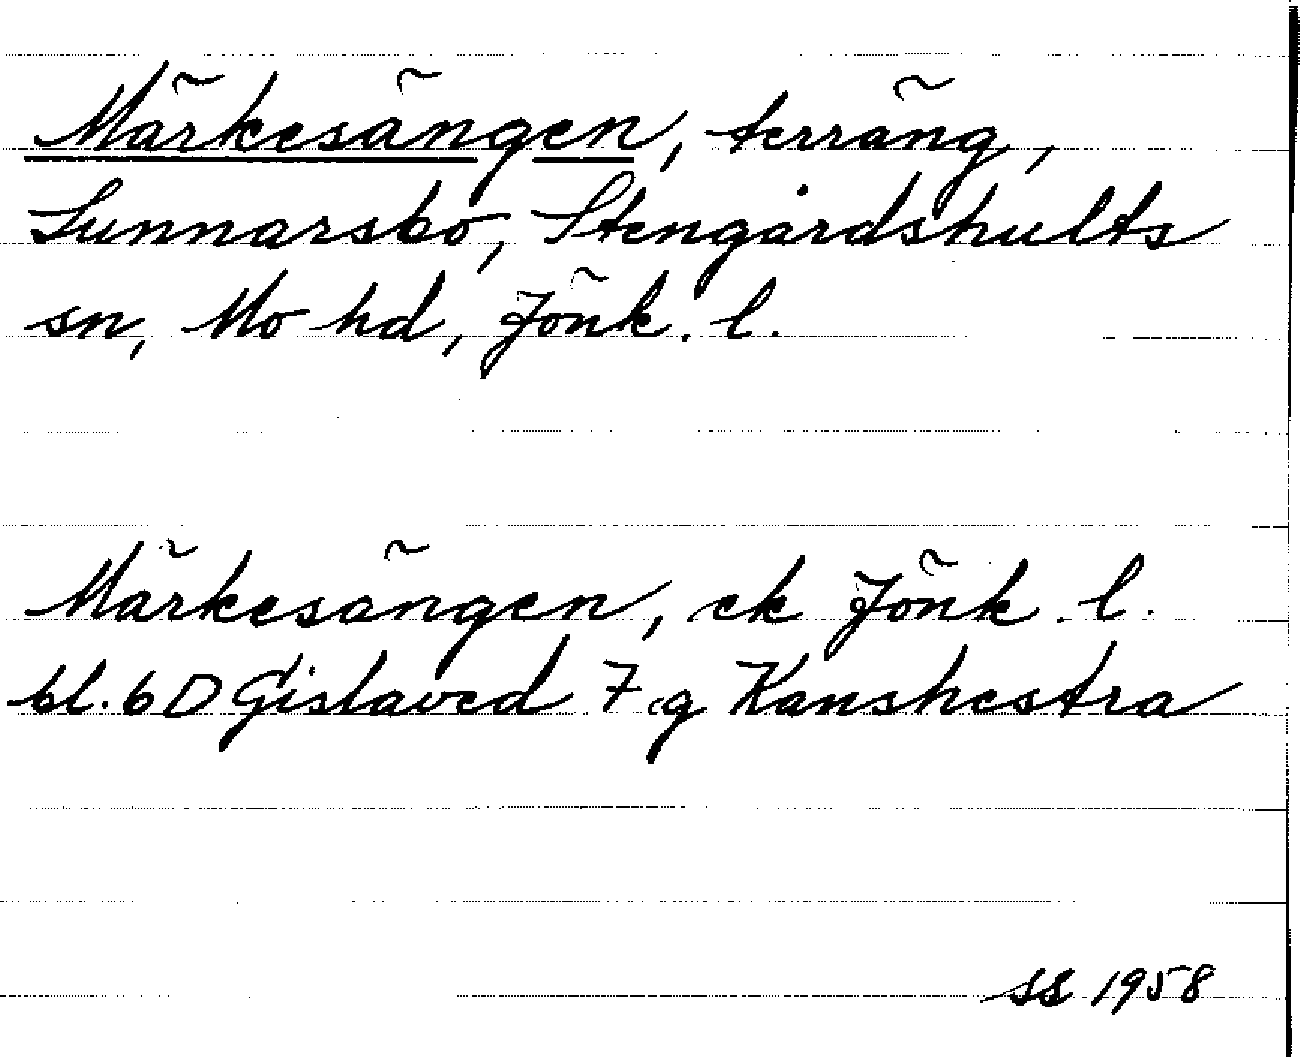 Märkesängen, terräng,
Sunnarsbo, Stengårdshults
sn, Mo hd, Jönk. l.
Märkesängen, ek Jönk. l.
bl. 6D Gislaved 7 g Kanshestra
SS 1958